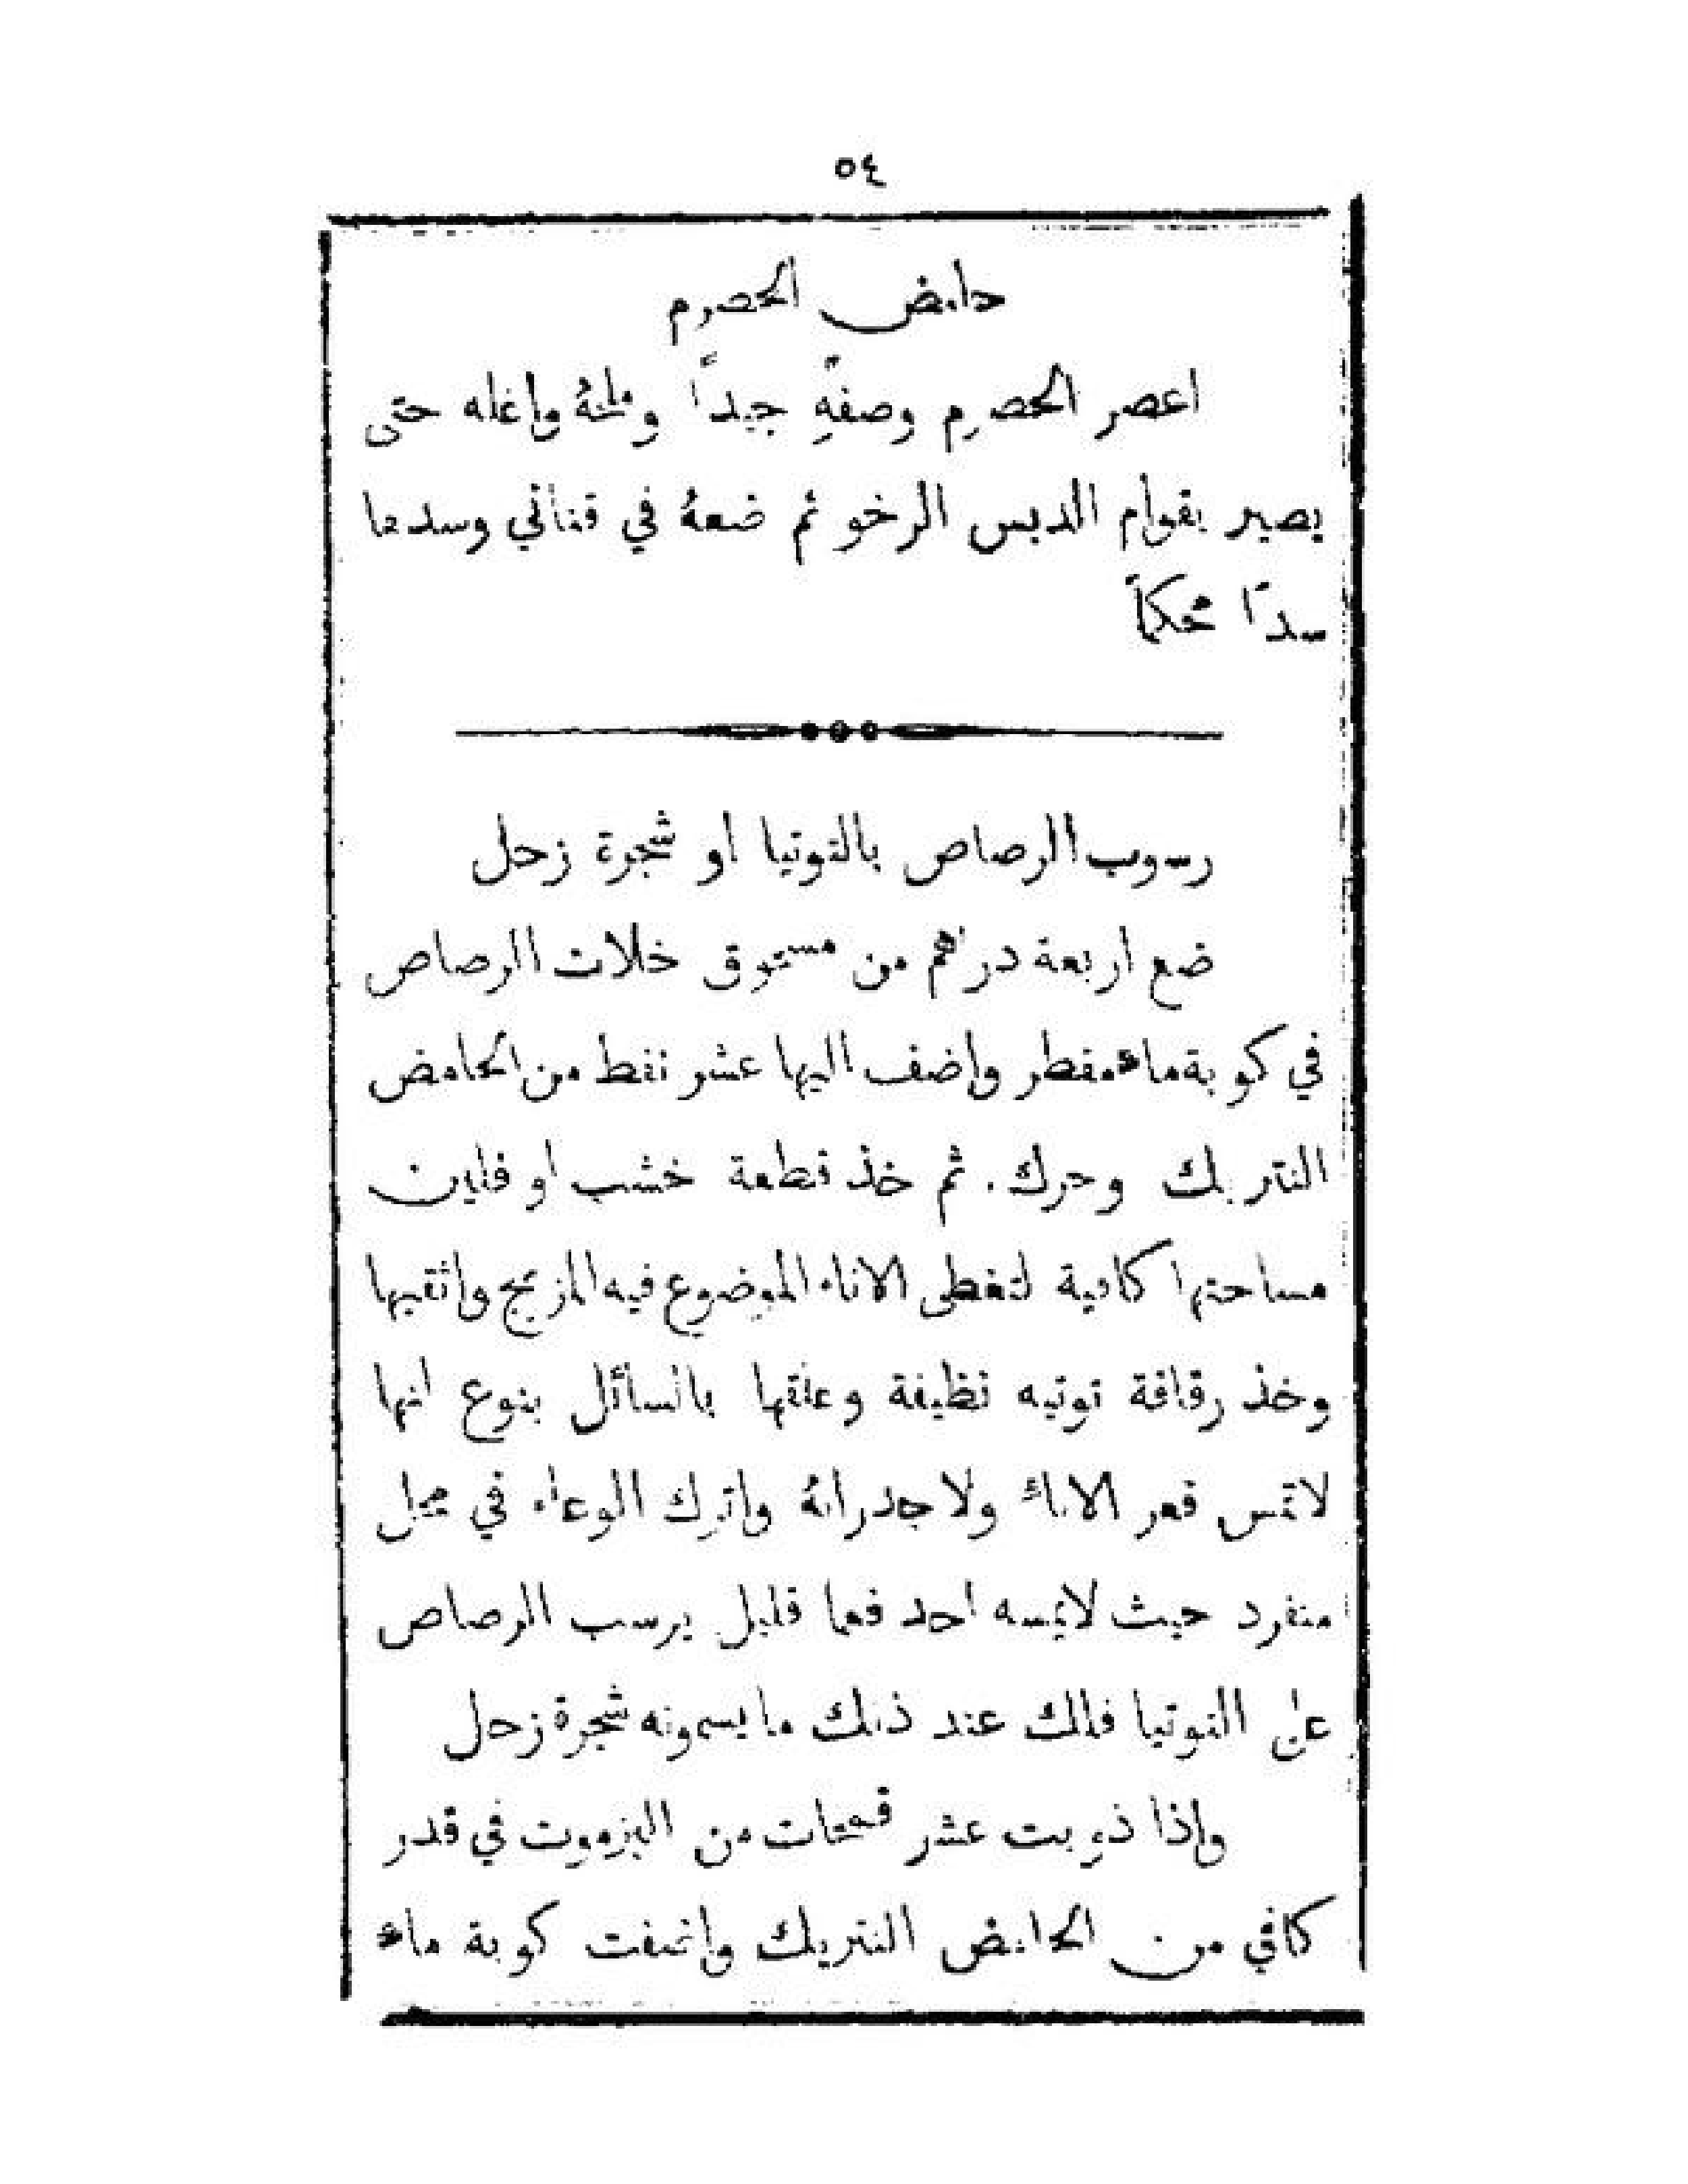 ٥٤
حامض الحصرم
اعصر الحصرم وصفهِ جيداً وملحهُ واغله حتى
يصير بقوام الدبس الرخو ثم ضعهُ في قناني وسدها
سدًا محكماً
رسوب الرصاص بالتوتيا او شجرة زحل
ضع اربعة دراهم من مسحوق خلات الرصاص
في كوبة ماء مقطر واضف اليها عشر نقط من الحامض
النتريك وحرك . ثم خذ قطعة خشب او فلين
مساحتها كافية لتغطى الاناء الموضوع فيه المزيج واثقبها
وخذ رقاقة توتيه نظيفة وعلقها بالسائل بنوع انها
لاتمس قعر الاناء ولا جدرانه واترك الوعاء في محل
منفرد حيث لايمسه احد فعما قليل يرسب الرصاص
على التوتيا فلك عند ذلك ما يسمونه شجرة زحل
واذا ذوبت عشر قمحات من البزموت في قدر
كافي من الحامض النتريك واضفت كوبة ماء